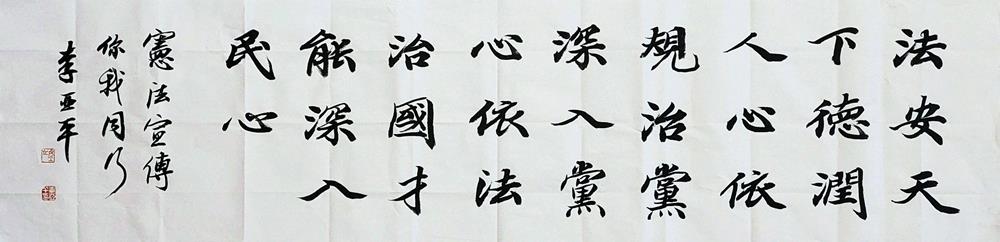 法安天
下德潤
人心依
規治黨
深入黨
心依法
治國才
能深入
民心
憲法宣傳
你我同行
李亚平